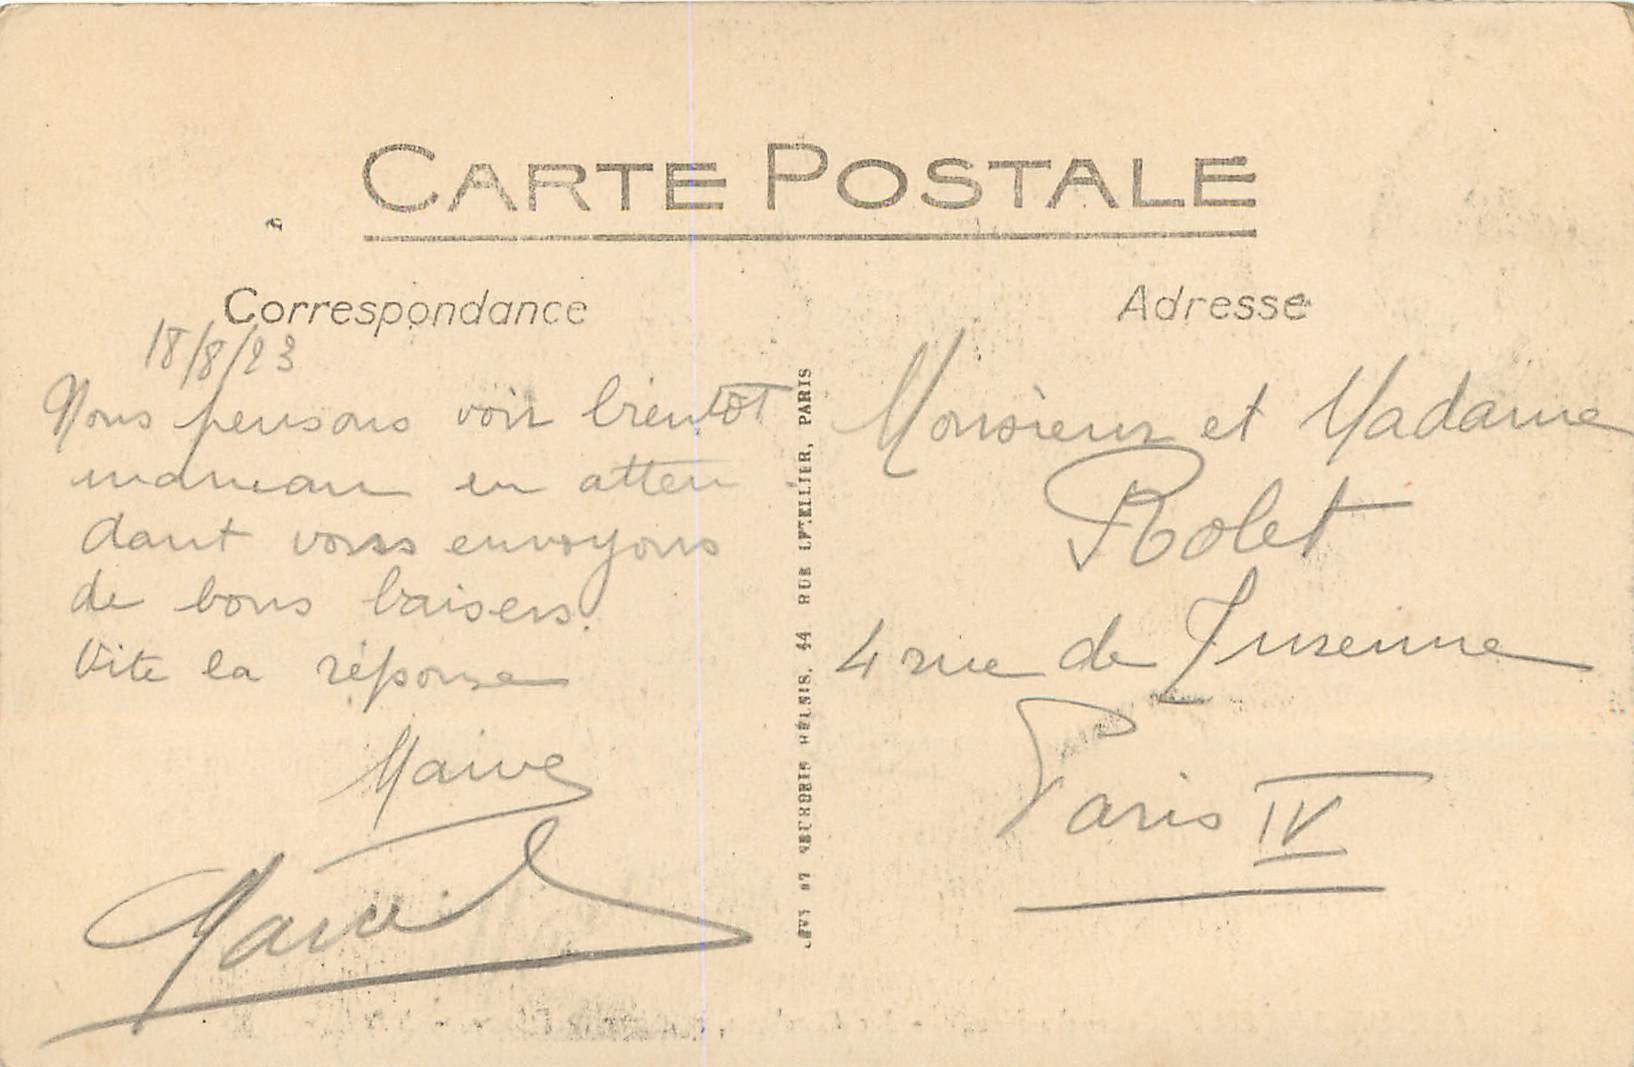 CARTE POSTALE
Correspondance
18/8/23
Nous pensons voir bientôt
en atten
dant vous envoyons
de bons baisers.
Vite la réponse
Marcel
LEVY ET NEURDEIN RÉUNIS, 44 RUE LETELLIER, PARIS
Adresse
Monsieur et Madame
Rolet
4 rue de
Paris IV